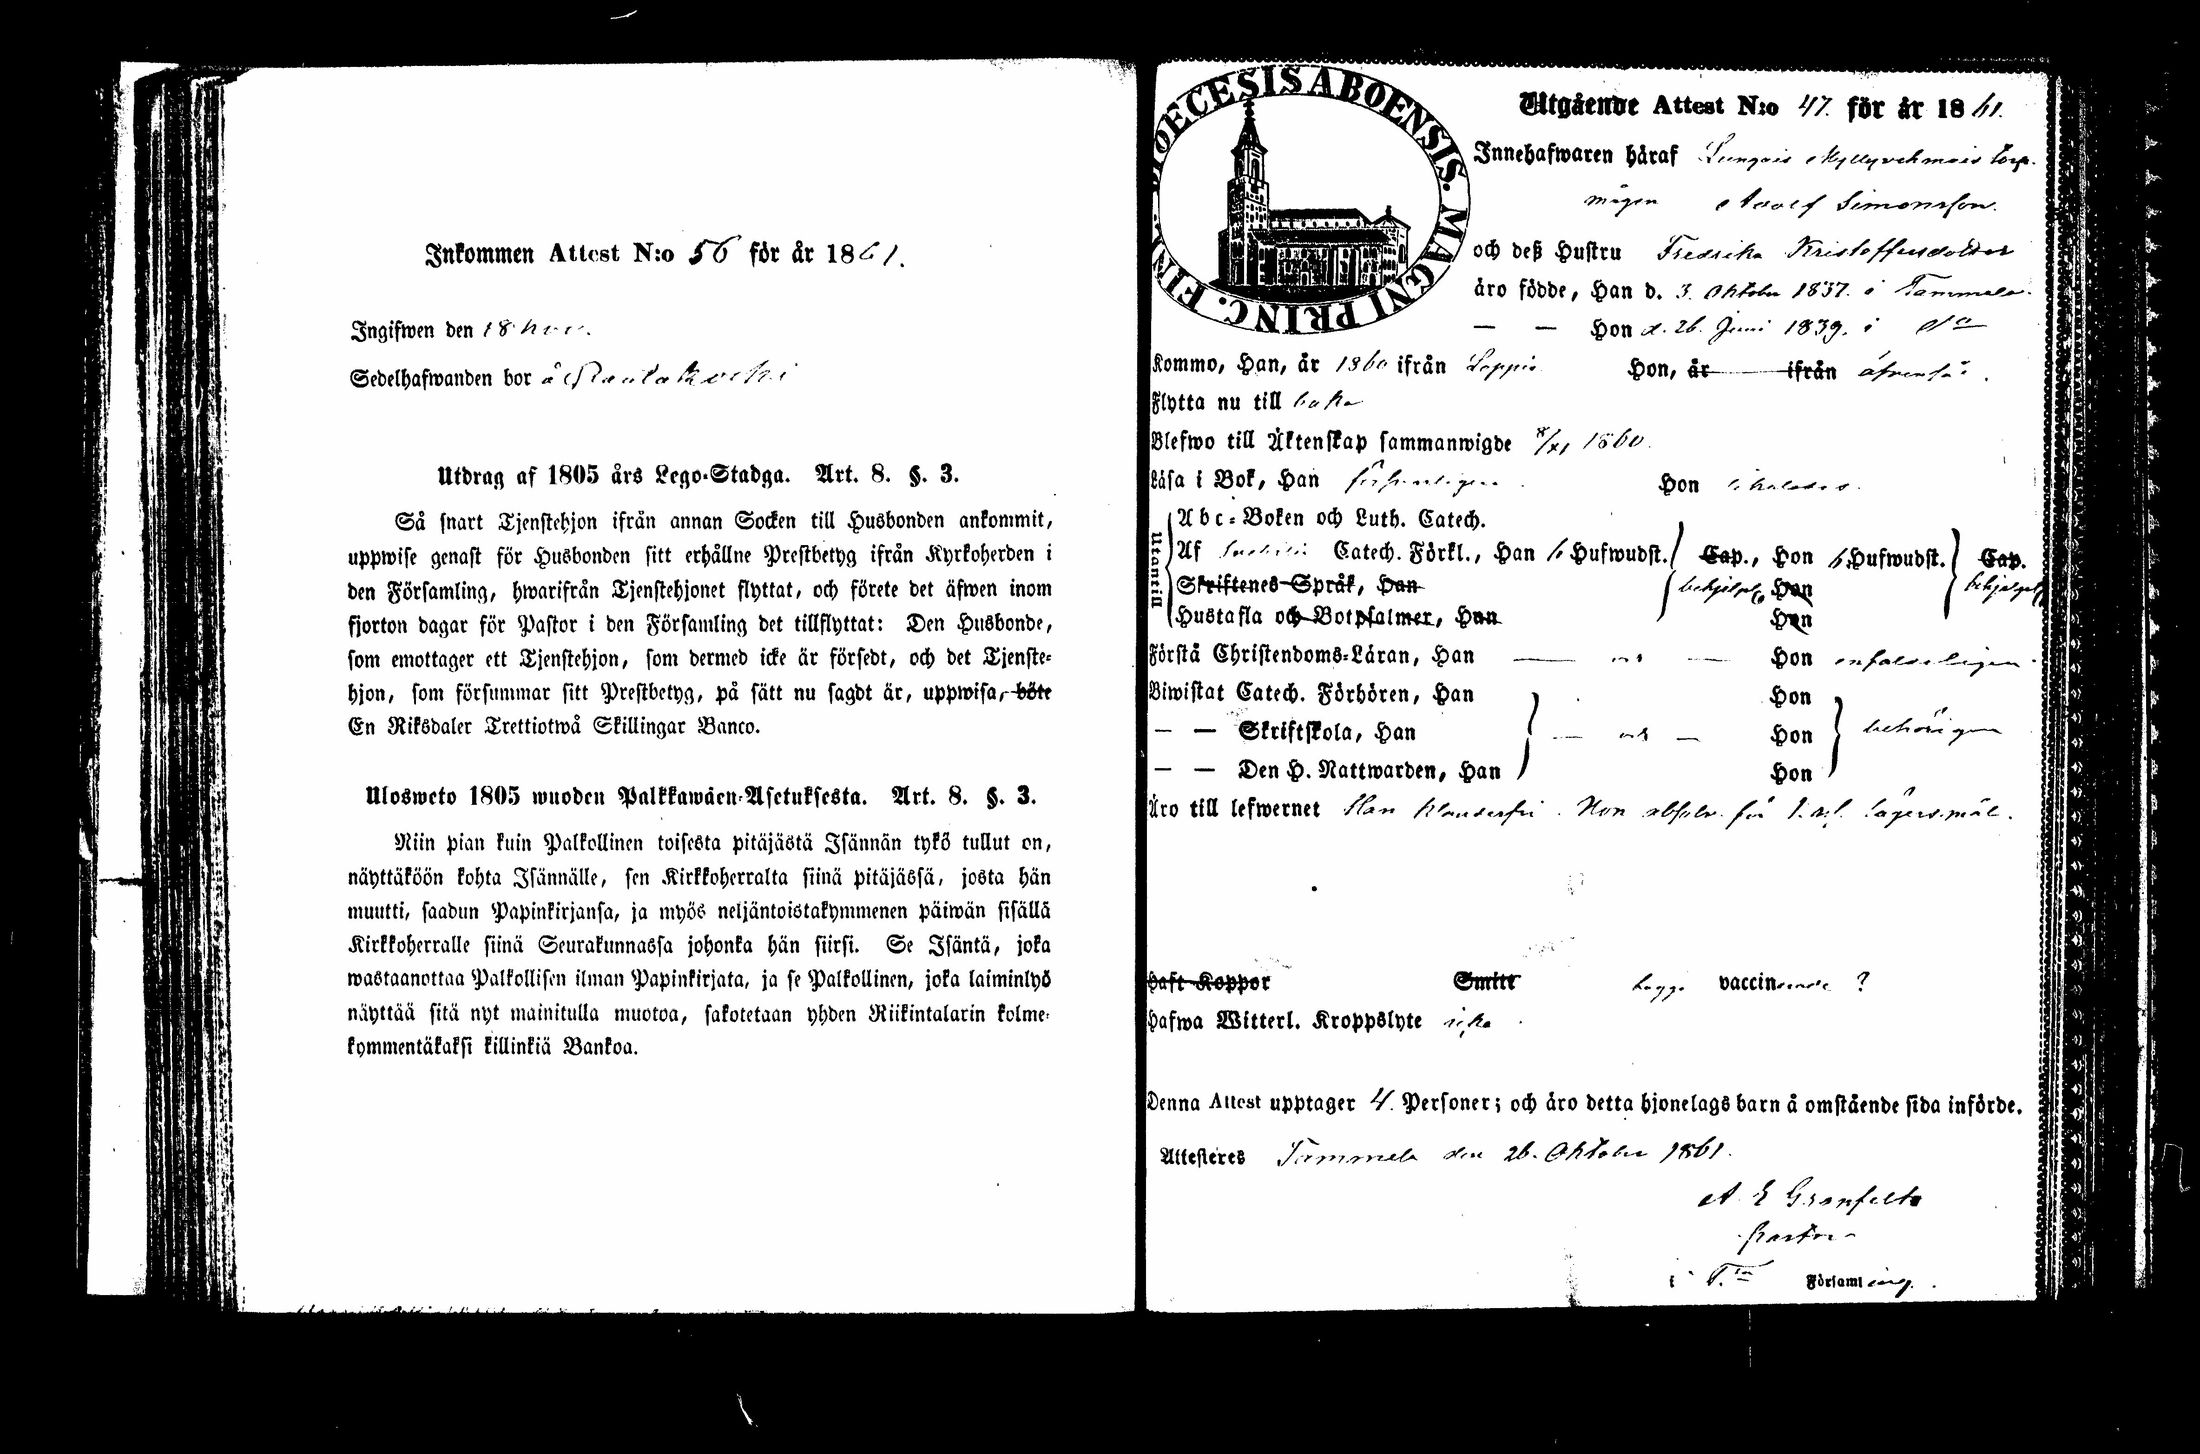 Inkommen Attest N:o 56 för år 1861.
Ingifwen den 18 nov.
Sedelhafwanden bor å
Utdrag af 1805 års Lego-Stadga. Art. 8. §. 3.
Så snart Tjenstehjon ifrån annan Socken till Husbonden ankommit,
uppwise genast för Husbonden sitt erhållne Prestbetyg ifrån Kyrkoherden i
den Församling, hwarifrån Tjenstehjonet flyttat, och förete det äfwen inom
fjorton dagar för Pastor i den Församling det tillflyttat: Den Husbonde,
som emottager ett Tjenstehjon, som dermed icke är försedt, och det Tjenste-
hjon, som försummar sitt Prestbetyg, på sätt nu sagdt är, uppwisa, böte
En Riksdaler Trettiotwå Skillingar Banco.
Ulosweto 1805 wuoden Palkkawäen-Asetuksesta. Art. 8. §. 3.
Niin pian kuin Palkollinen toisesta pitäjästä Isännän tykö tullut on,
näyttäköön kohta Isännälle, sen Kirkkoherralta siinä pitäjässä, josta hän
muutti, saadun Papinkirjansa, ja myös neljäntoistakymmenen päiwän sisällä
Kirkkoherralle siinä Seurakunnassa johonka hän siirsi. Se Isäntä, joka
wastaanottaa Palkollisen ilman Papinkirjata, ja se Palkollinen, joka laiminlyö
näyttää sitä nyt mainitulla muotoa, sakotetaan yhden Riikintalarin kolme-
kymmentäkaksi killinkiä Bankoa.
DIOECESIS ABOENSIS. MAGNI PRINC. FINL.
Utgående Attest N:o 47. för år 1861.
Innehafwaren häraf torp.
mågen Adolf Simonsson.
och deß Hustru Fredrika Kristoffersdotter
äro födde, Han d. 3. Oktober 1837. i Tammela.
— — Hon d. 26. Juni 1839. i do
Kommo, Han, år 1860 ifrån Loppis Hon, år ifrån äfvenså.
Flytta nu till baka
Blefwo till Äktenskap sammanwigde 8/XI 1860.
Läsa i Bok, Han försvarligen. Hon likaledes.
Utantill
Abc-Boken och Luth. Catech.
Af Svebilii Catech. Förkl., Han 6 Hufwudst. Cap., Hon 6 Hufwudst. Cap.
Skriftenes Språk, Han behjelpl. Hon behjelpl.
Hustafla och Botpsalmer, Han Hon
Förstå Christendoms-Läran, Han — och — Hon enfaldeligen.
Biwistat Catech. Förhören, Han Hon
— — Skriftskola, Han — och — Hon behörigen
— — Den H. Nattwarden, Han Hon
Äro till lefwernet Han klanderfri. Hon absolv. för lägersmål.
Haft Koppor Smitt begge vaccinerade ?
Hafwa Witterl. Kroppslyte icke.
Denna Attest upptager 4. Personer; och äro detta hjonelags barn å omstående sida införde.
Attesteras Tammela den 26. Oktober 1861.
A E Granfelt
Pastor
i T.la Församling.